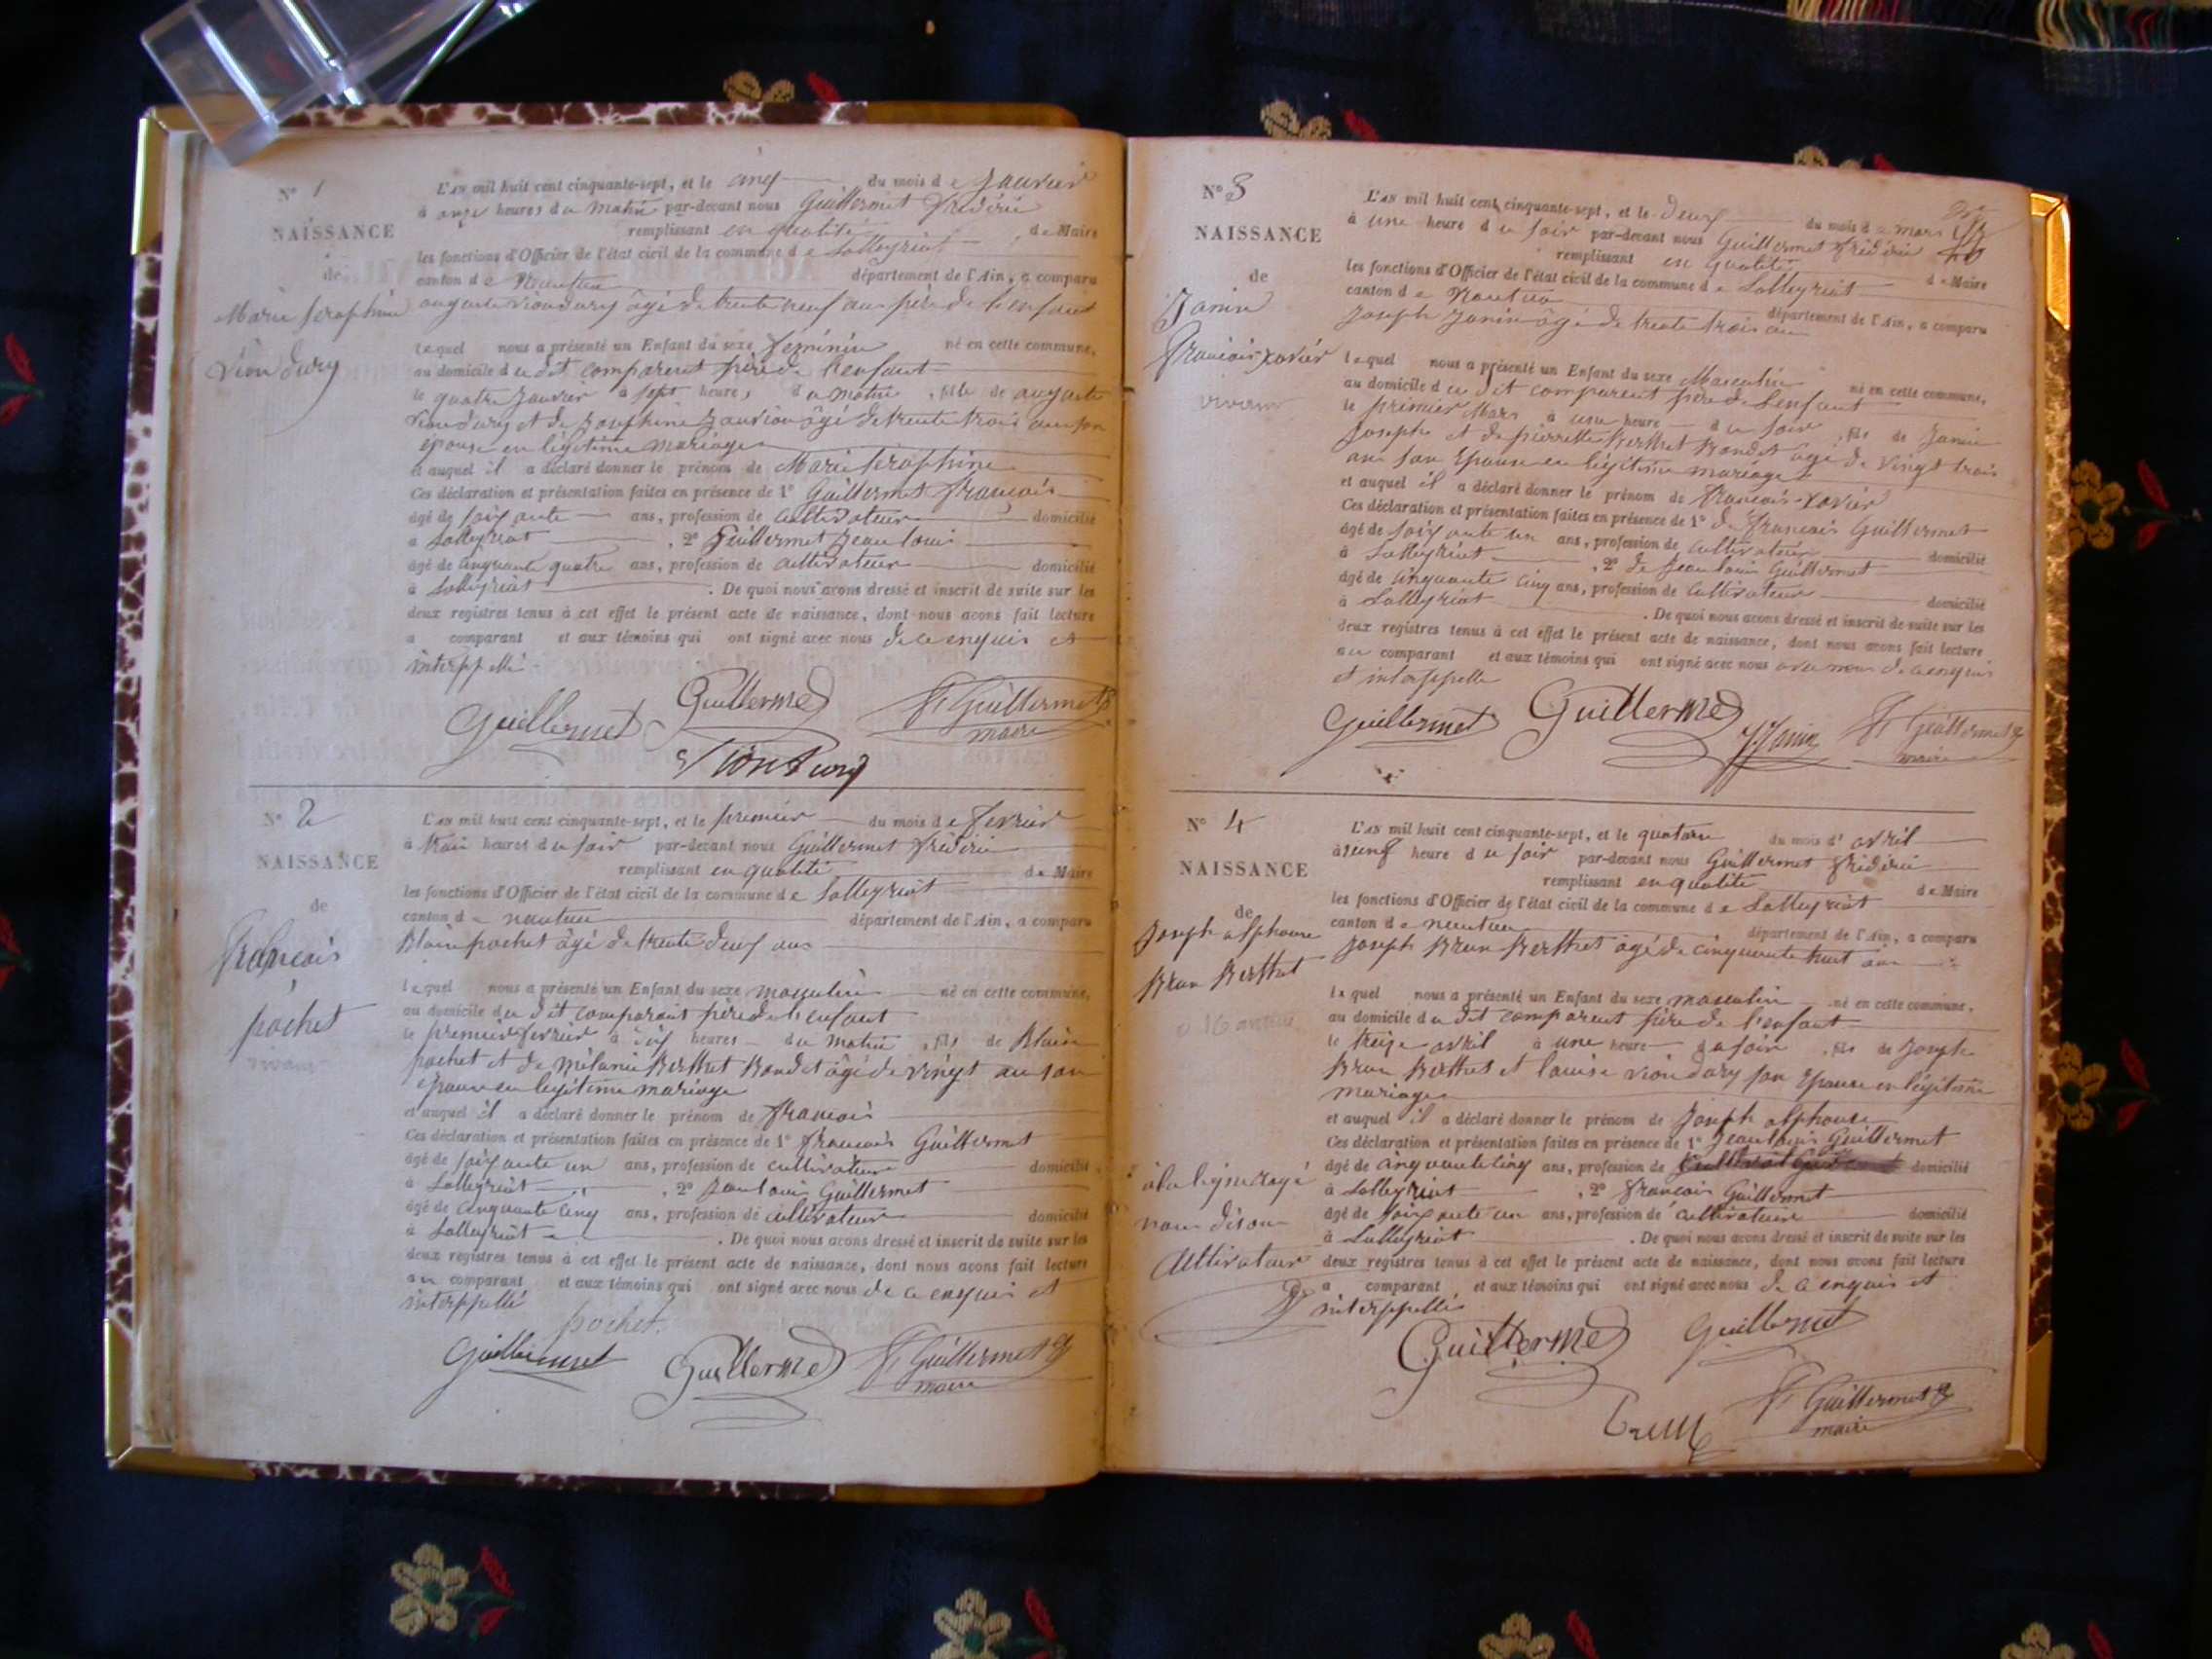 N° 1
NAISSANCE
de
Marie Seraphine
Viondury
L'AN mil huit cent cinquante-sept, et le cinq du mois de Janvier
à onze heures du matin par-devant nous Guillermet frédéric
remplissant en qualité de Maire
les fonctions d'Officier de l'état civil de la commune de Lalleyriat
canton de Nantua département de l'Ain, a comparu
auguste viondury âgé de trente neuf ans père de l'enfant
lequel nous a présenté un Enfant du sexe féminin né en cette commune,
au domicile du dit comparent père de l'enfant
le quatre Janvier à sept heures du matin, fille de auguste
viondury et de Josephine âgé de trente trois ans son
épouse en légitime mariage
et auquel il a déclaré donner le prénom de Marie Seraphine
Ces déclaration et présentation faites en présence de 1° Guillermet françois
âgé de soixante ans, profession de cultivateur domicilié
à Lalleyriat, 2° Guillermet Jean louis
âgé de cinquante quatre ans, profession de cultivateur domicilié
à Lalleyriat. De quoi nous avons dressé et inscrit de suite sur les
deux registres tenus à cet effet le présent acte de naissance, dont nous avons fait lecture
a comparant et aux témoins qui ont signé avec nous de ce enquis et
interppellé
Guillermet Guillermet F Guillermet
maire
Viondury
N° 2
NAISSANCE
de
françois
pochet
vivant
L'AN mil huit cent cinquante-sept, et le premier du mois de fevrier
à trois heures du soir par-devant nous Guillermet frédéric
remplissant en qualité de Maire
les fonctions d'Officier de l'état civil de la commune de Lalleyriat
canton de nantua département de l'Ain, a comparu
Blaise pochet âgé de trente deux ans
lequel nous a présenté un Enfant du sexe masculin né en cette commune,
au domicile du dit comparant père de l'enfant
le premier fevrier à dix heures du matin, fils de Blaise
pochet et de Mélanie Berthet Bondet âgé de vingt ans son
épouse en legitime mariage
et auquel il a déclaré donner le prénom de françois
Ces déclaration et présentation faites en présence de 1° françois Guillermet
âgé de soixante un ans, profession de cultivateur domicilié
à Lalleyriat, 2° Jean louis Guillermet
âgé de cinquante cinq ans, profession de cultivateur domicilié
à Lalleyriat. De quoi nous avons dressé et inscrit de suite sur les
deux registres tenus à cet effet le présent acte de naissance, dont nous avons fait lecture
au comparant et aux témoins qui ont signé avec nous de ce enquis et
interppellé
pochet.
Guillermet Guillermet F Guillermet
maire
N° 3
NAISSANCE
de
Janin
françois-xavier
vivant
L'AN mil huit cent cinquante-sept, et le deux du mois de mars
à une heure du soir par-devant nous Guillermet frédéric
remplissant en qualité de Maire
les fonctions d'Officier de l'état civil de la commune de Lalleyriat
canton de Nantua département de l'Ain, a comparu
Joseph Janin âgé de trente trois ans
lequel nous a présenté un Enfant du sexe Masculin né en cette commune,
au domicile du dit comparent père de l'enfant
le premier Mars à une heure du soir, fils de Janin
Joseph et de pierrette Berthet Bondet âgé de vingt trois
ans son Epouse en légitime mariage
et auquel il a déclaré donner le prénom de françois-xavier
Ces déclaration et présentation faites en présence de 1° de françois Guillermet
âgé de soixante un ans, profession de cultivateur domicilié
à Lalleyriat, 2° de Jean louis Guillermet
âgé de cinquante cinq ans, profession de cultivateur domicilié
à Lalleyriat. De quoi nous avons dressé et inscrit de suite sur les
deux registres tenus à cet effet le présent acte de naissance, dont nous avons fait lecture
au comparant et aux témoins qui ont signé avec nous avec nous de ce enquis
et interppellé
Guillermet Guillermet J Janin F Guillermet
maire
N° 4
NAISSANCE
de
Joseph alphonse
Brun Berthet
à la ligne rayé
nous disons
cultivateur
L'AN mil huit cent cinquante-sept, et le quatorze du mois d'avril
à une heure du soir par-devant nous Guillermet frédéric
remplissant en qualité de Maire
les fonctions d'Officier de l'état civil de la commune de Lalleyriat
canton de nantua département de l'Ain, a comparu
Joseph Brun Berthet âgé de cinquante huit ans
lequel nous a présenté un Enfant du sexe masculin né en cette commune,
au domicile du dit comparent père de l'enfant
le treize avril à une heure du soir, fils de Joseph
Brun Berthet et louise viondury son Epouse en légitime
mariage
et auquel il a déclaré donner le prénom de Joseph alphonse
Ces déclaration et présentation faites en présence de 1° Jean louis Guillermet
âgé de cinquante cinq ans, profession de domicilié
à Lalleyriat, 2° françois Guillermet
âgé de soixante un ans, profession de cultivateur domicilié
à Lalleyriat. De quoi nous avons dressé et inscrit de suite sur les
deux registres tenus à cet effet le présent acte de naissance, dont nous avons fait lecture
a comparant et aux témoins qui ont signé avec nous de ce enquis et
interppellés
Guillermet Guillermet
F Guillermet
maire